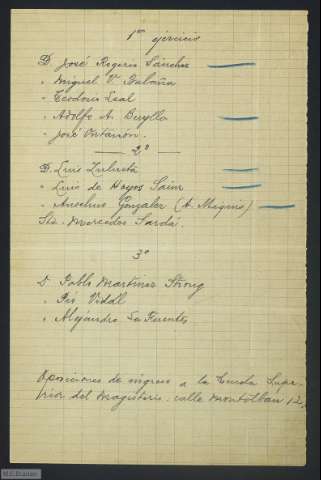 1er ejercicio
D. José Rogerio Sánchez
" Miguel V.
" Teodosio Leal
" Adolfo A. Buylla
" José Ontañón.
2º
D. Luis Zulueta
" Luis de Hoyos Sáinz
" Anselmo González (A. Miquis)
Sta. Mercedes Sardá.
3º
D. Pablo Martínez Strong
" Pío Vidal
" Alejandro La Fuente
Oposiciones de ingreso a la Escuela Supe-
rior del Magisterio. calle Montalbán 12